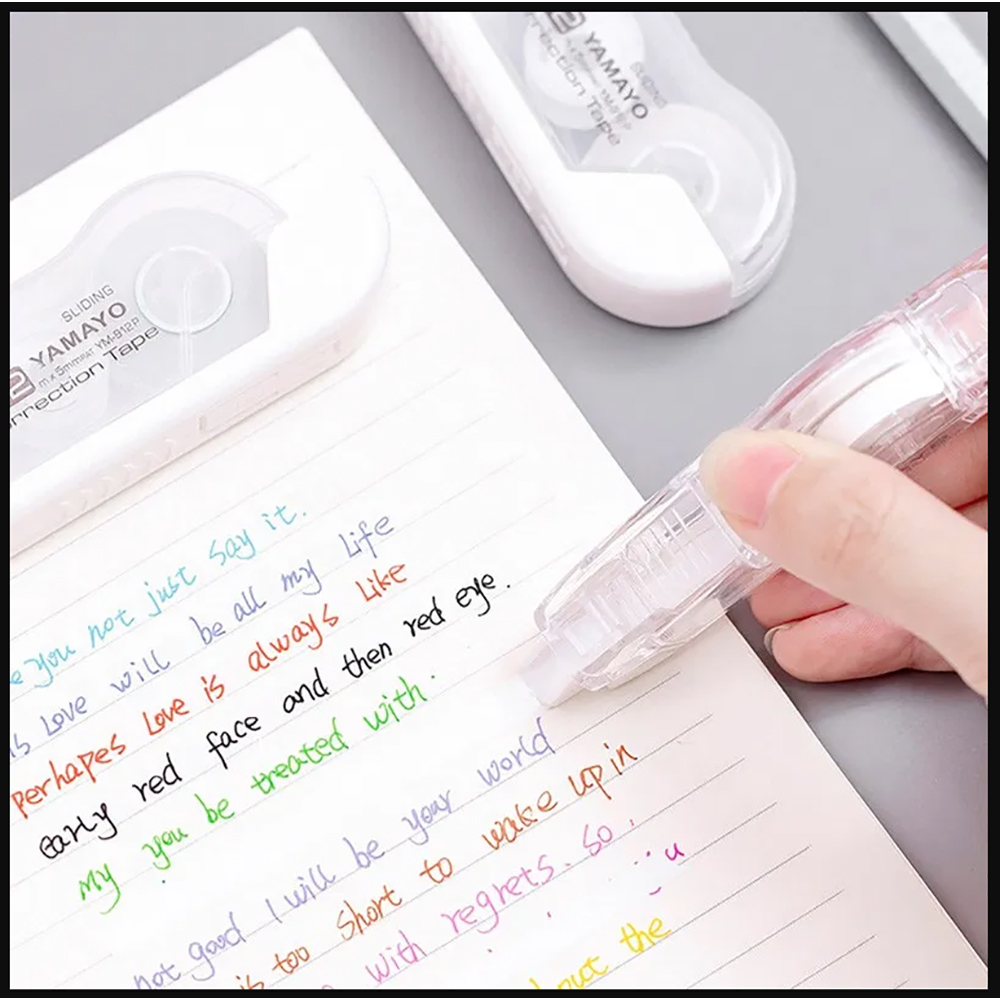 2 YAMAYO
SLIDING
Correction Tape
SLIDING
2 YAMAYO
m x 5mm PAT YM-912P
rrection Tape
e you not just say it.
is Love will be all my life
perhapes Love is always like
early red face and then red eye.
my you be treated with.
not good I will be your world
is too short to wake up in
with regrets. so.
the